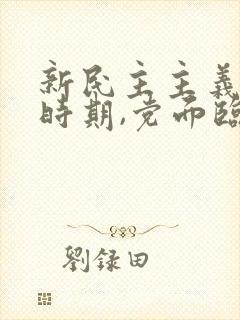 新民主主義
時期,党面臨
劉録田